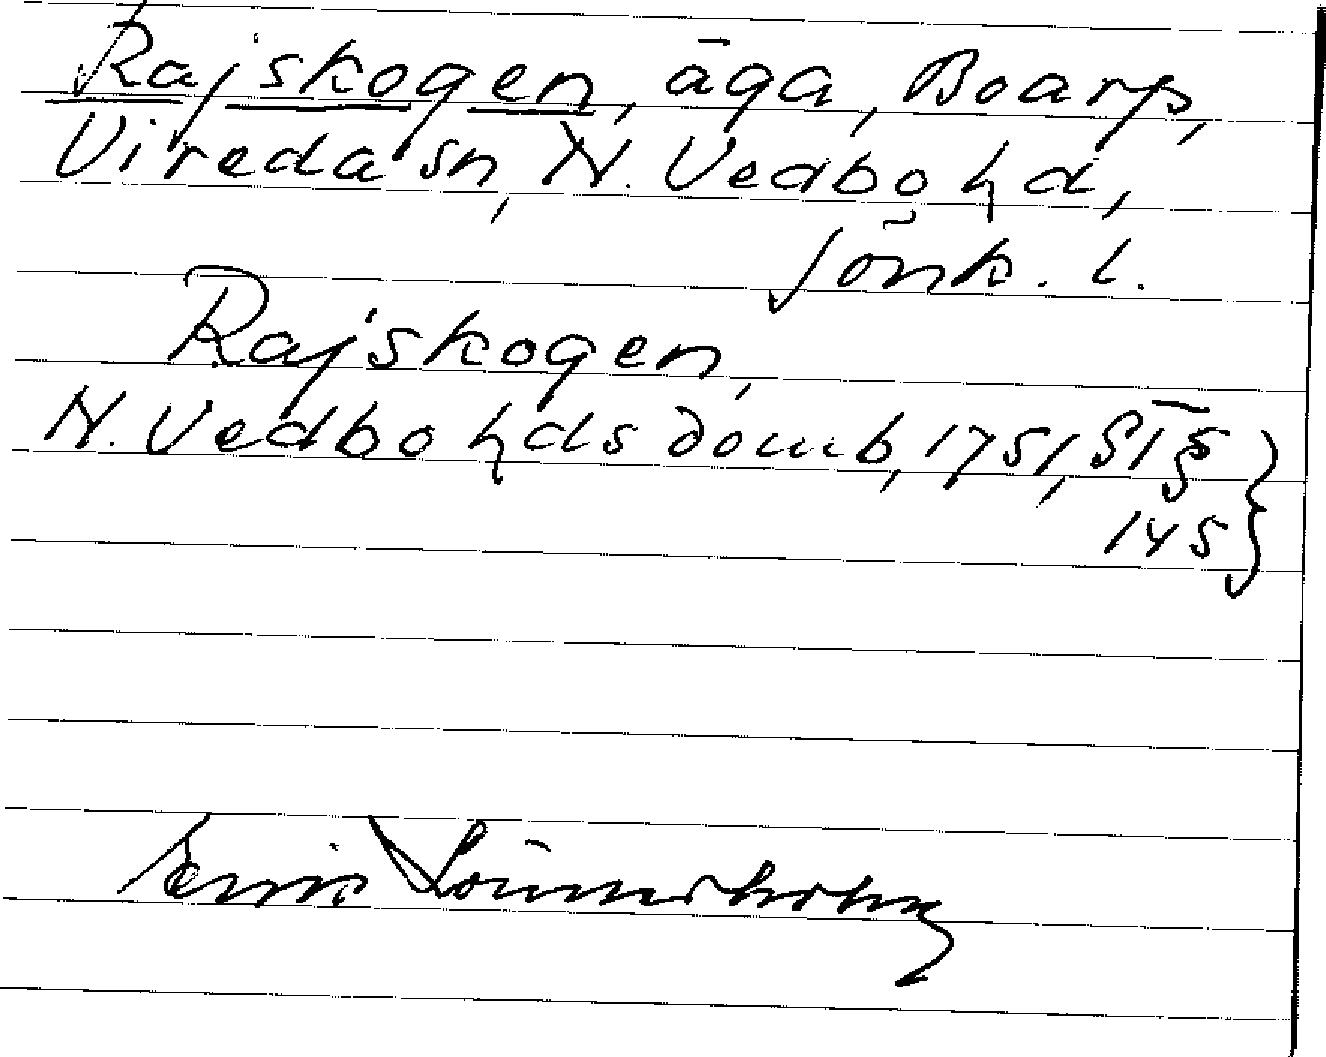 Rajskogen, äga, Boarp,
Vireda sn, N. Vedbo hd,
Jönk. l.
Rajskogen,
N. Vedbo hds domb, 1751, ST §
145
Erik Lönnerholm